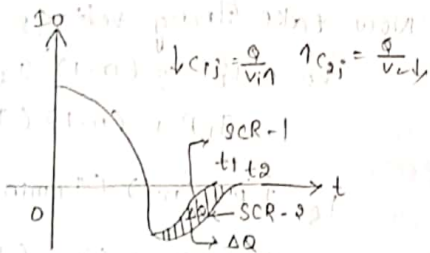 Io
↓C1j = Q/V1↑ ↑C2j = Q/V2↓
SCR-1
t1 t2
t
O
SCR-2
ΔQ